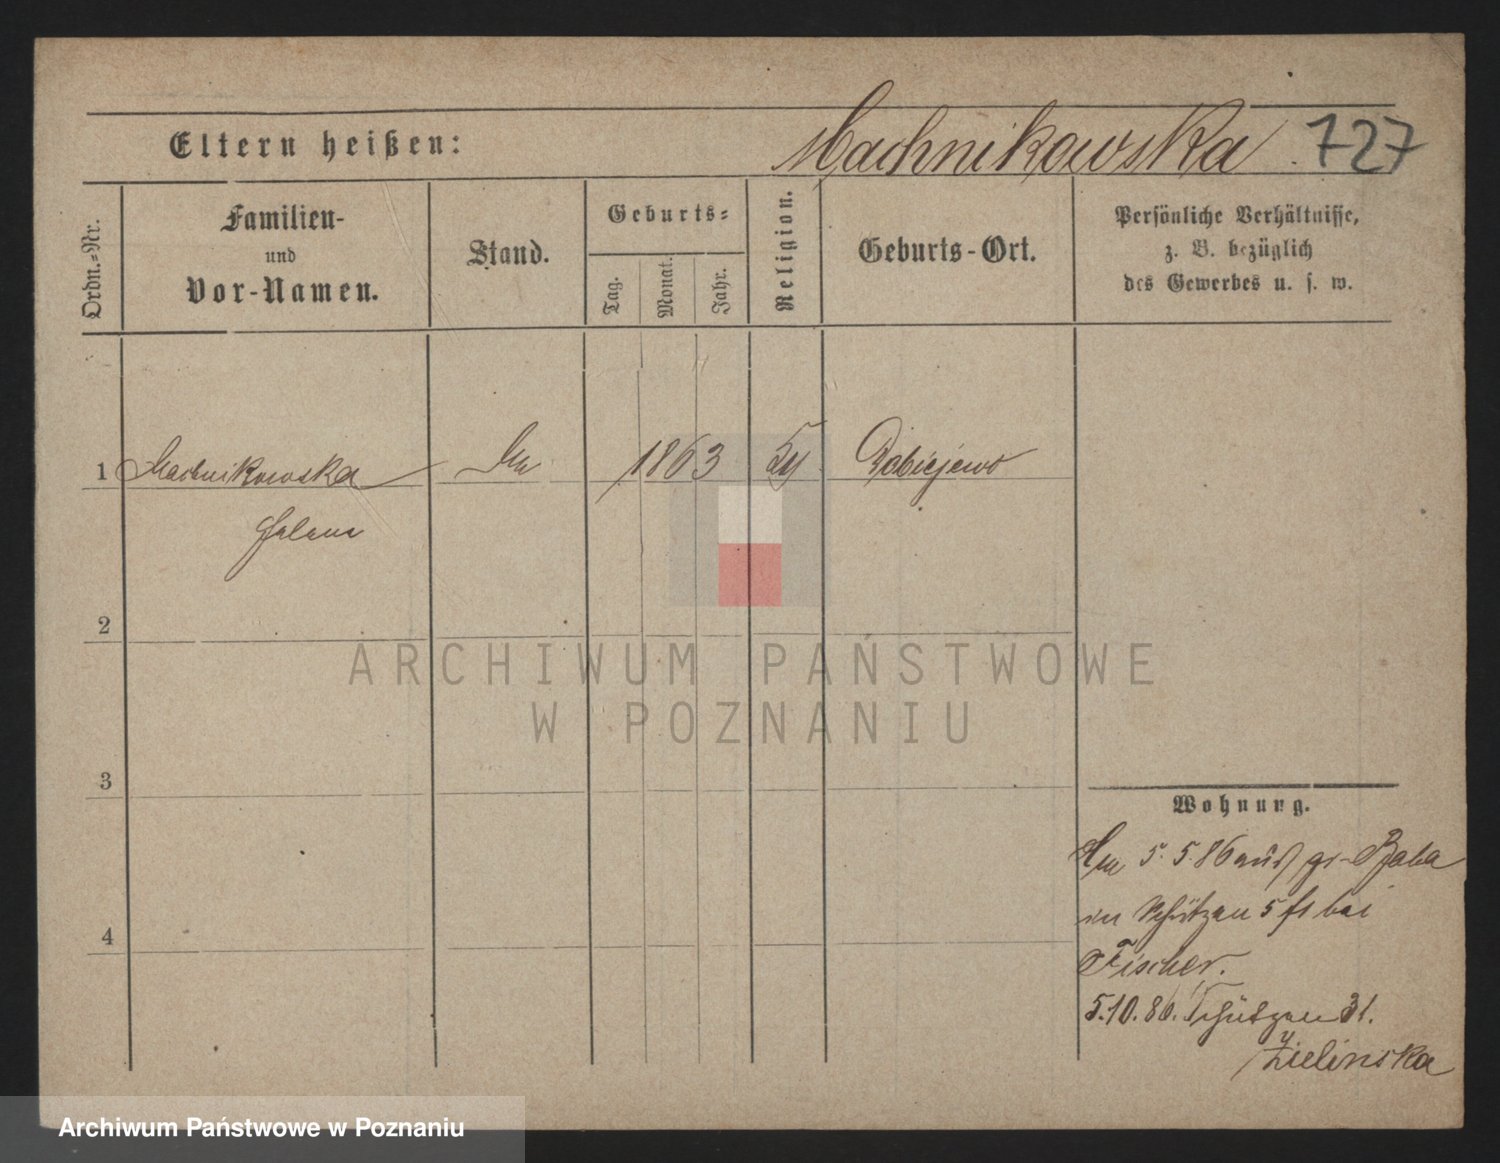 Eltern heißen:
Machnikowska 727
Ordn.-Nr.
Familien-
und
Vor-Namen.
Stand.
Geburts-
Tag.
Monat.
Jahr.
Religion.
Geburts-Ort.
Persönliche Verhältnisse,
z. B. bezüglich
des Gewerbes u. s. w.
1 Machnikowska 1863 Dobiejewo
Helene
2
3
4
Wohnung.
5. 5. 86 aus gr-
in Schützen 5 bei
Fischer.
5.10.86. Schützen 31.
Zielinska
ARCHIWUM PAŃSTWOWE
W POZNANIU
Archiwum Państwowe w Poznaniu